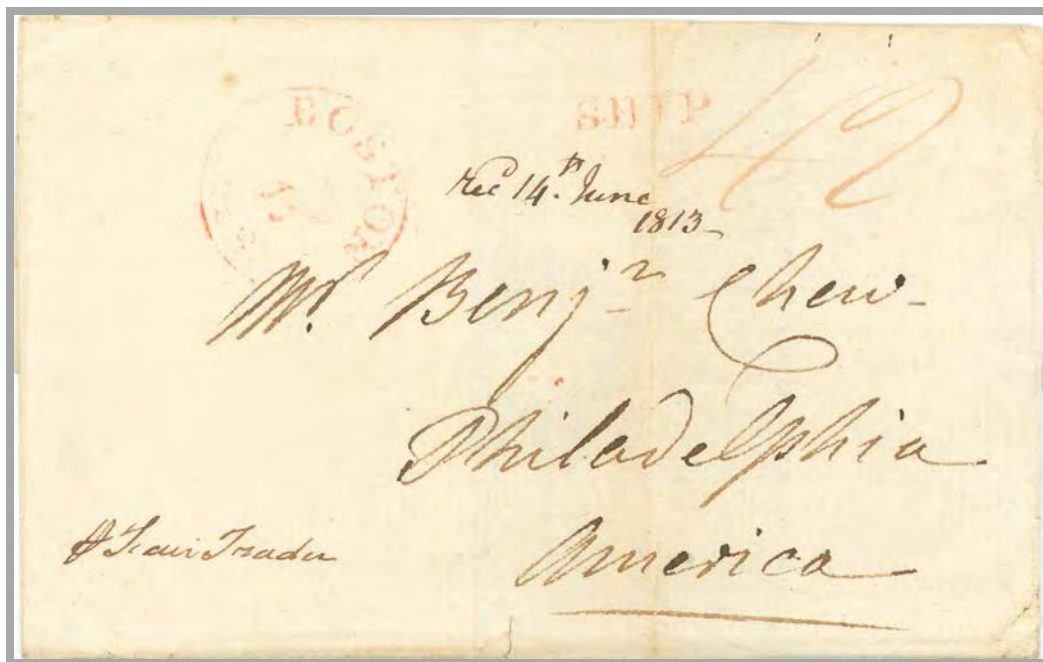 BOSTON
SHIP
42
Rec 14th June
1813
Mr. Benjn Chew
Philadelphia
America
Trader